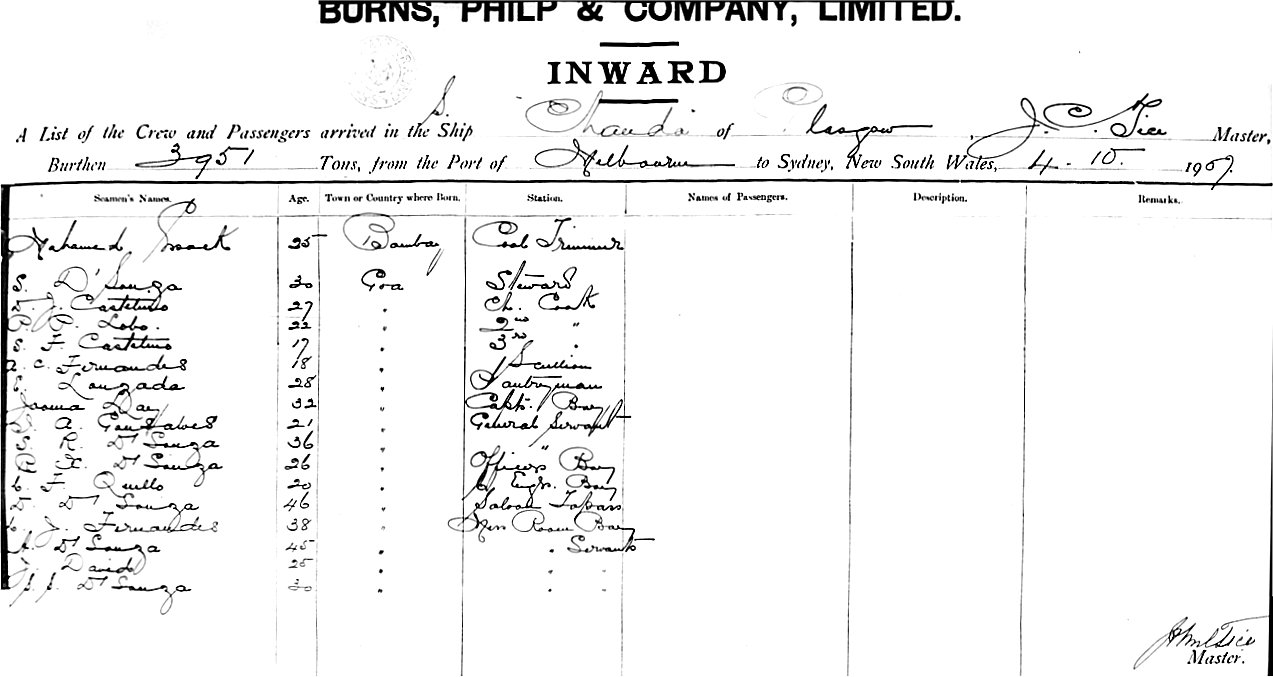 BURNS, PHILP & COMPANY, LIMITED.
INWARD
A List of the Crew and Passengers arrived in the S. Ship Chanda of Glasgow, J. C. Tice Master,
Burthen 3951 Tons, from the Port of Melbourne to Sydney, New South Wales, 4 - 10. 1907.
Seamen's Names. Age. Town or Country where Born. Station. Names of Passengers. Description. Remarks.
Mahamed 25 Bombay Coal Trimmer
S. D'Souza 30 Goa Steward
J. Castelino 27 " Ch. Cook
P. P. Lobo. 22 " 2nd "
S. F. Castelino 17 " 3rd "
A. C. Fernandes 18 " Scullion
Louzada 28 " Pantryman
32 " Capt. Boy
A. Gonsalves 21 " General Servant
R. D'Souza 36 " "
D'Souza 26 " Officers Boy
F. Quillo 20 " Engr. Boy
D'Souza 46 " Saloon Topass
J. Fernandes 38 " Mess Room Boy
A. D'Souza 45 " " Servants
David 25 " " "
J. J. D'Souza 30 " " "
Master.